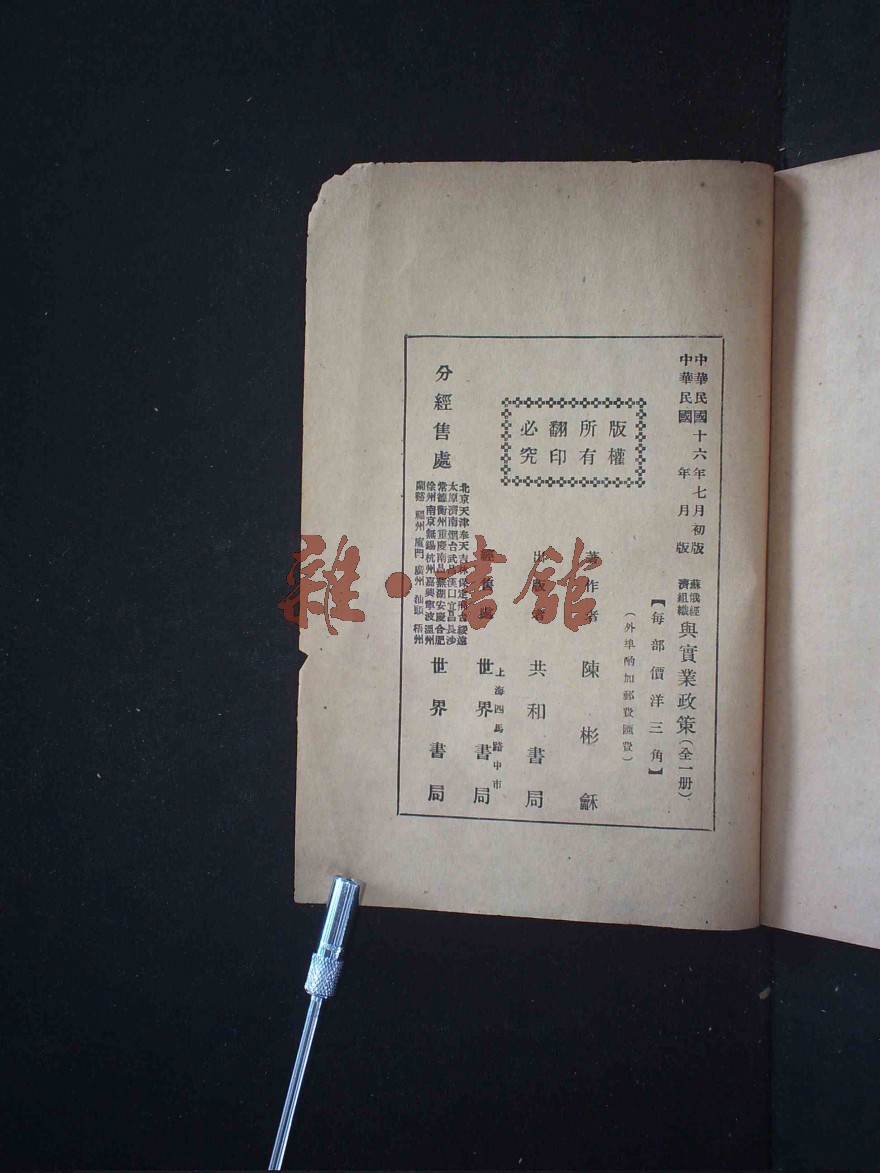 中華民國十六年七月初版
中華民國　年　月　版
蘇俄經濟組織與實業政策（全一册）
【每部價洋三角】
（外埠酌加郵費匯費）
版權
所有
翻印
必究
著作者　陳彬龢
出版者　共和書局
上海四馬路中市
經售處　世界書局
分經售處　世界書局
北京天津奉天吉林保定邢台綏遠
太原濟南烟台武昌漢口宜昌長沙
常德衡州重慶南昌蕪湖安慶合肥
徐州南京無錫杭州嘉興寧波溫州
蘭谿 福州 廈門 廣州 汕頭 梧州
雜·書館